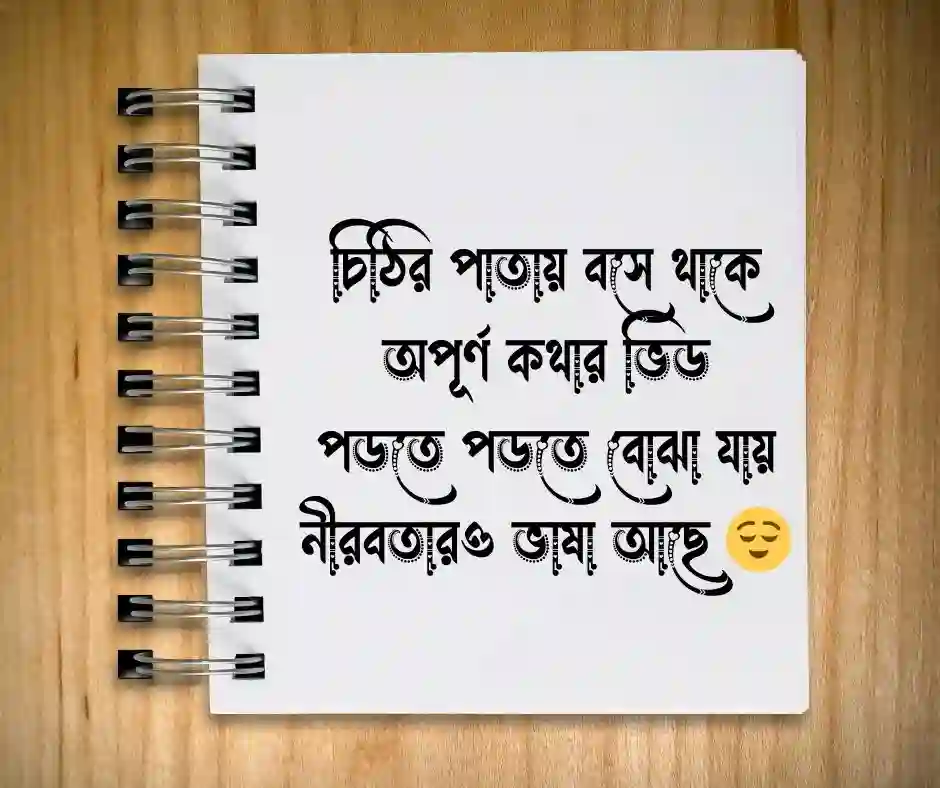 চিঠির পাতায় বসে থাকে
অপূর্ণ কথার ভিড
পডতে পডতে বোঝা যায়
নীরবতারও ভাষা আছে 😌